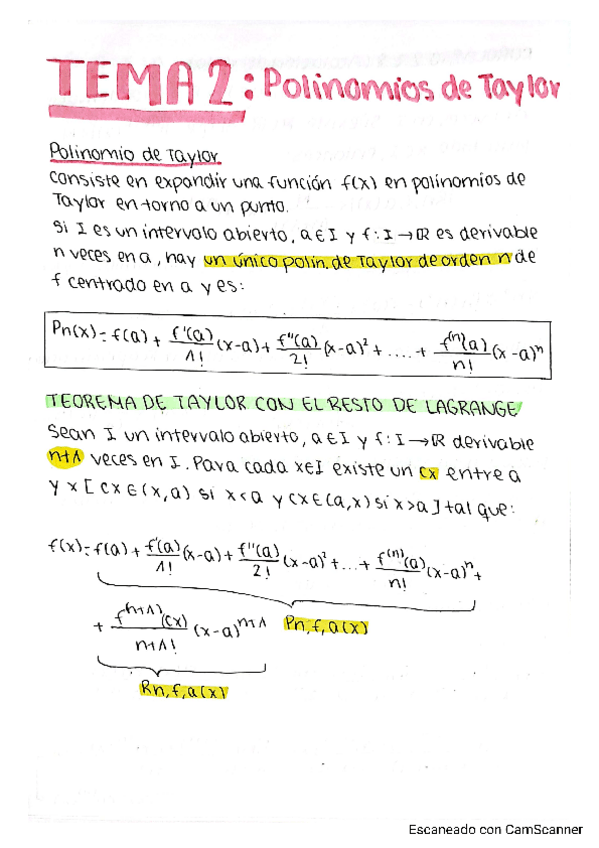 TEMA 2: Polinomios de Taylor
Polinomio de Taylor
Consiste en expandir una función f(x) en polinomios de
Taylor en torno a un punto.
Si I es un intervalo abierto, a ∈ I y f: I → ℝ es derivable
n veces en a, hay un único polin. de Taylor de orden n de
f centrado en a y es:
Pn(x) = f(a) + f'(a)/1! (x-a) + f''(a)/2! (x-a)² + .... + f⁽ⁿ⁾(a)/n! (x-a)ⁿ
TEOREMA DE TAYLOR CON EL RESTO DE LAGRANGE
Sean I un intervalo abierto, a ∈ I y f: I → ℝ derivable
n+1 veces en I. Para cada x∈I existe un cx entre a
y x [cx ∈ (x,a) si x<a y cx∈(a,x) si x>a] tal que:
f(x) = f(a) + f'(a)/1! (x-a) + f''(a)/2! (x-a)² + ... + f⁽ⁿ⁾(a)/n! (x-a)ⁿ +
+ f⁽ⁿ⁺¹⁾(cx)/n+1! (x-a)ⁿ⁺¹ Pn,f,a(x)
Rn,f,a(x)
Escaneado con CamScanner